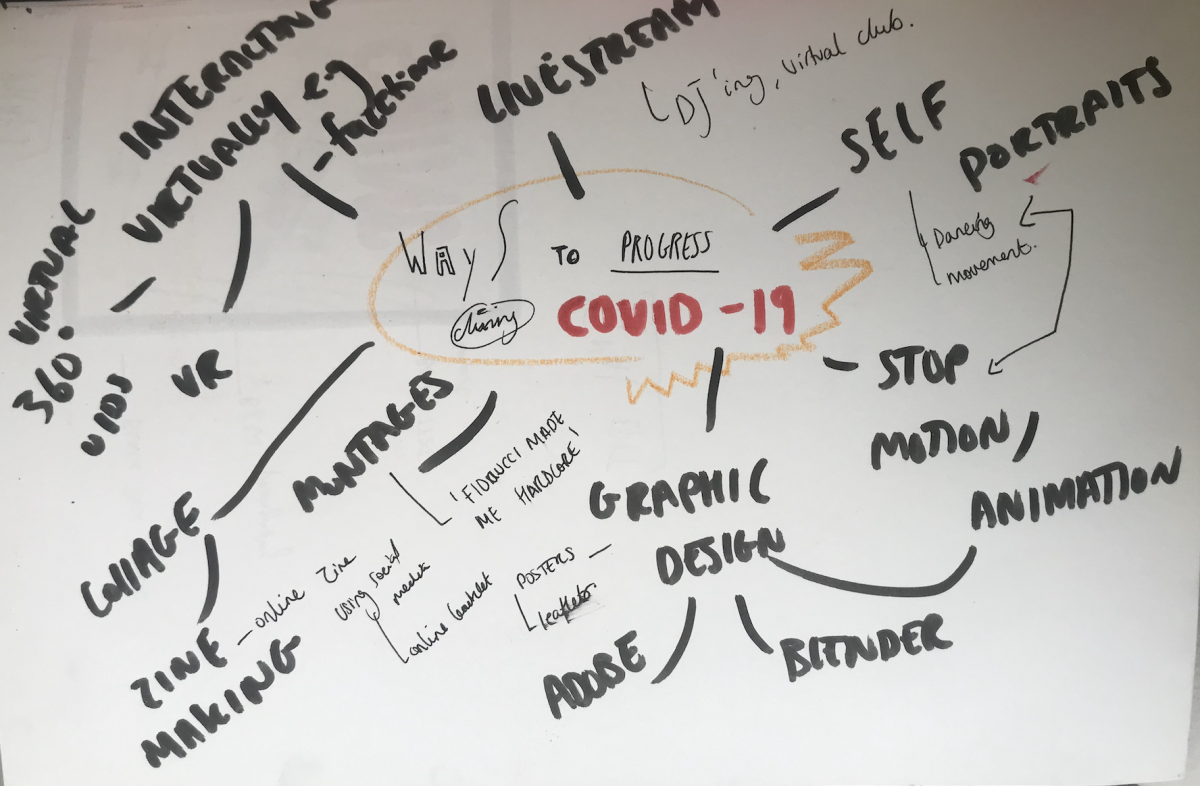 INTERACTING
VIRTUALLY eg
- facetime
LIVESTREAM
DJ'ing, virtual club.
SELF
PORTRAITS
Dancing
movement.
WAYS TO PROGRESS
during COVID-19
VIRTUAL
360°
VIDS
VR
MONTAGES
'FIORUCCI MADE
ME HARDCORE'
STOP
MOTION
ANIMATION
GRAPHIC
DESIGN
POSTERS -
leaflets
ADOBE
BLENDER
COllAGE
ZINE
MAKING
- online zine
using social
media
online booklet